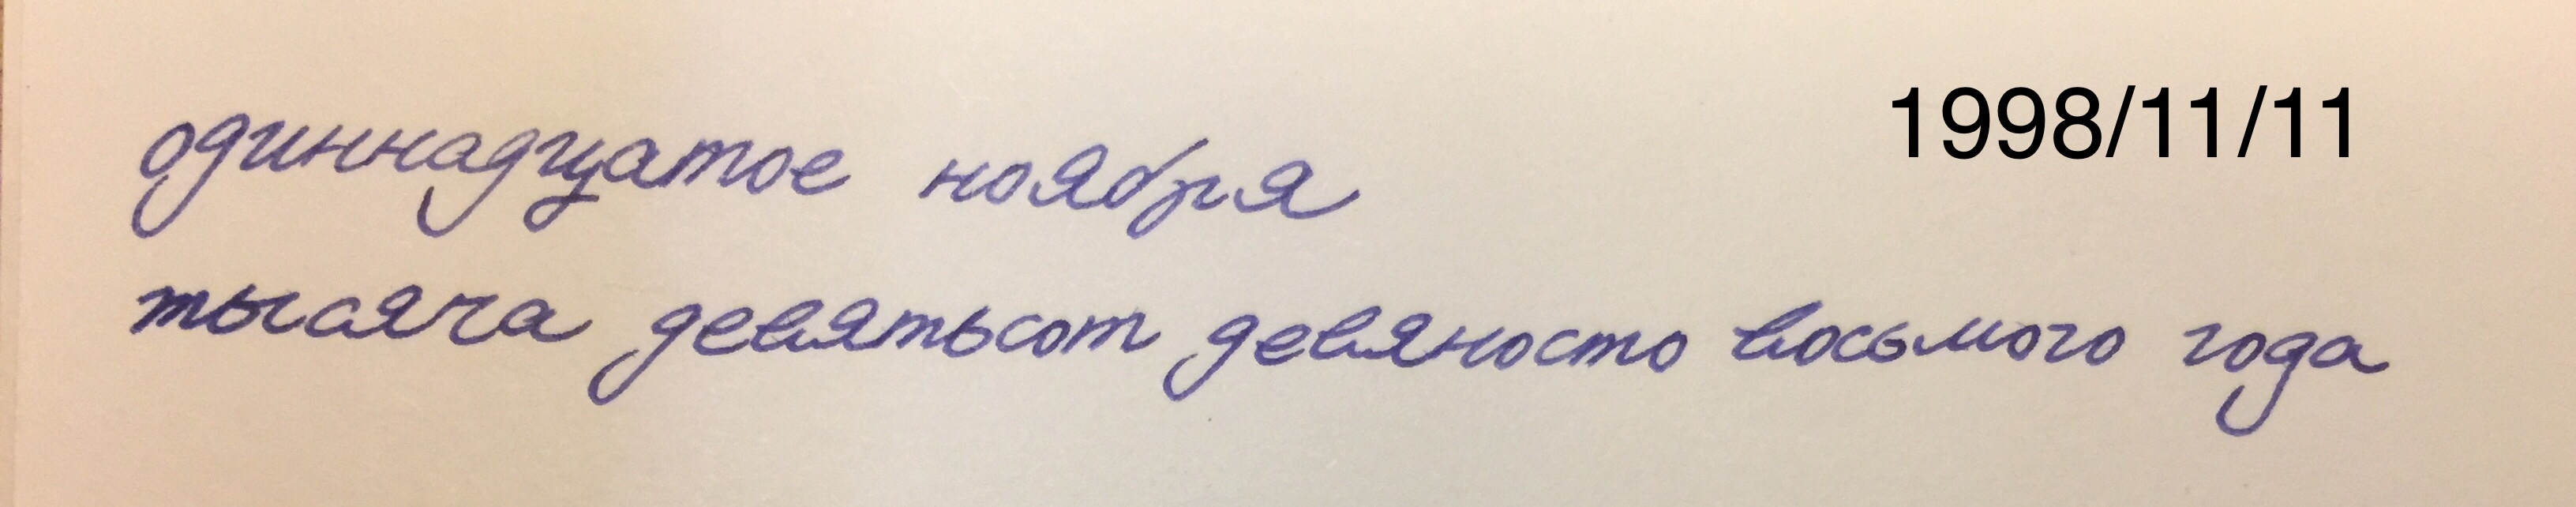 одиннадцатое ноября
1998/11/11
тысяча девятьсот девяносто восьмого года